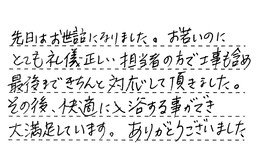 先日はお世話になりました。お若いのに
とても礼儀正しい担当者の方で工事も含め
最後まできちんと対応して頂きました。
その後、快適に入浴する事ができ
大満足しています。ありがとうございました